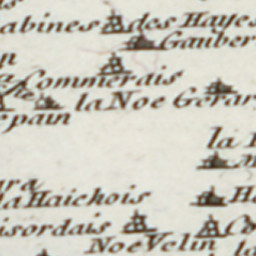 abines des Hayes
Gauber
Commerais
la Noe Gerar
pain
la
la Haichois
isordais
Noe Velin
la